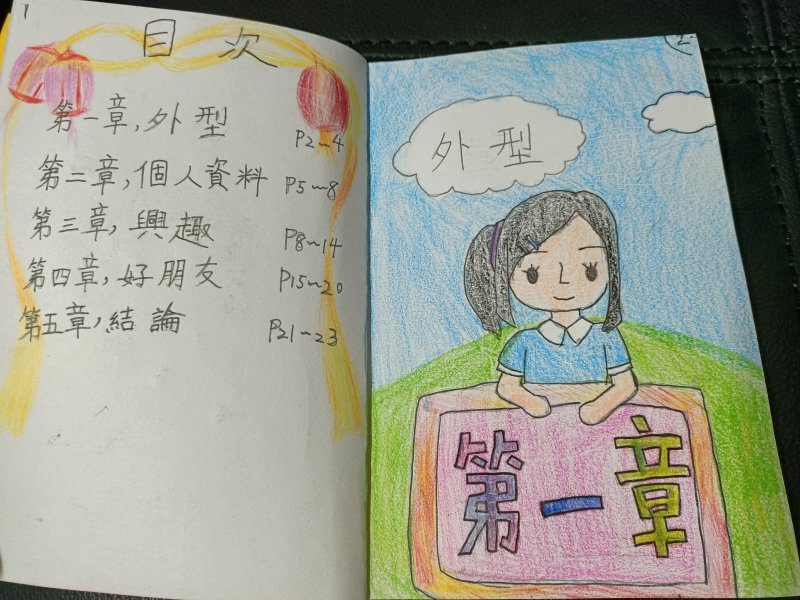 1
目次
第一章,外型 P2~4
第二章,個人資料 P5~8
第三章,興趣 P8~14
第四章,好朋友 P15~20
第五章,結論 P21~23
2
外型
第一章